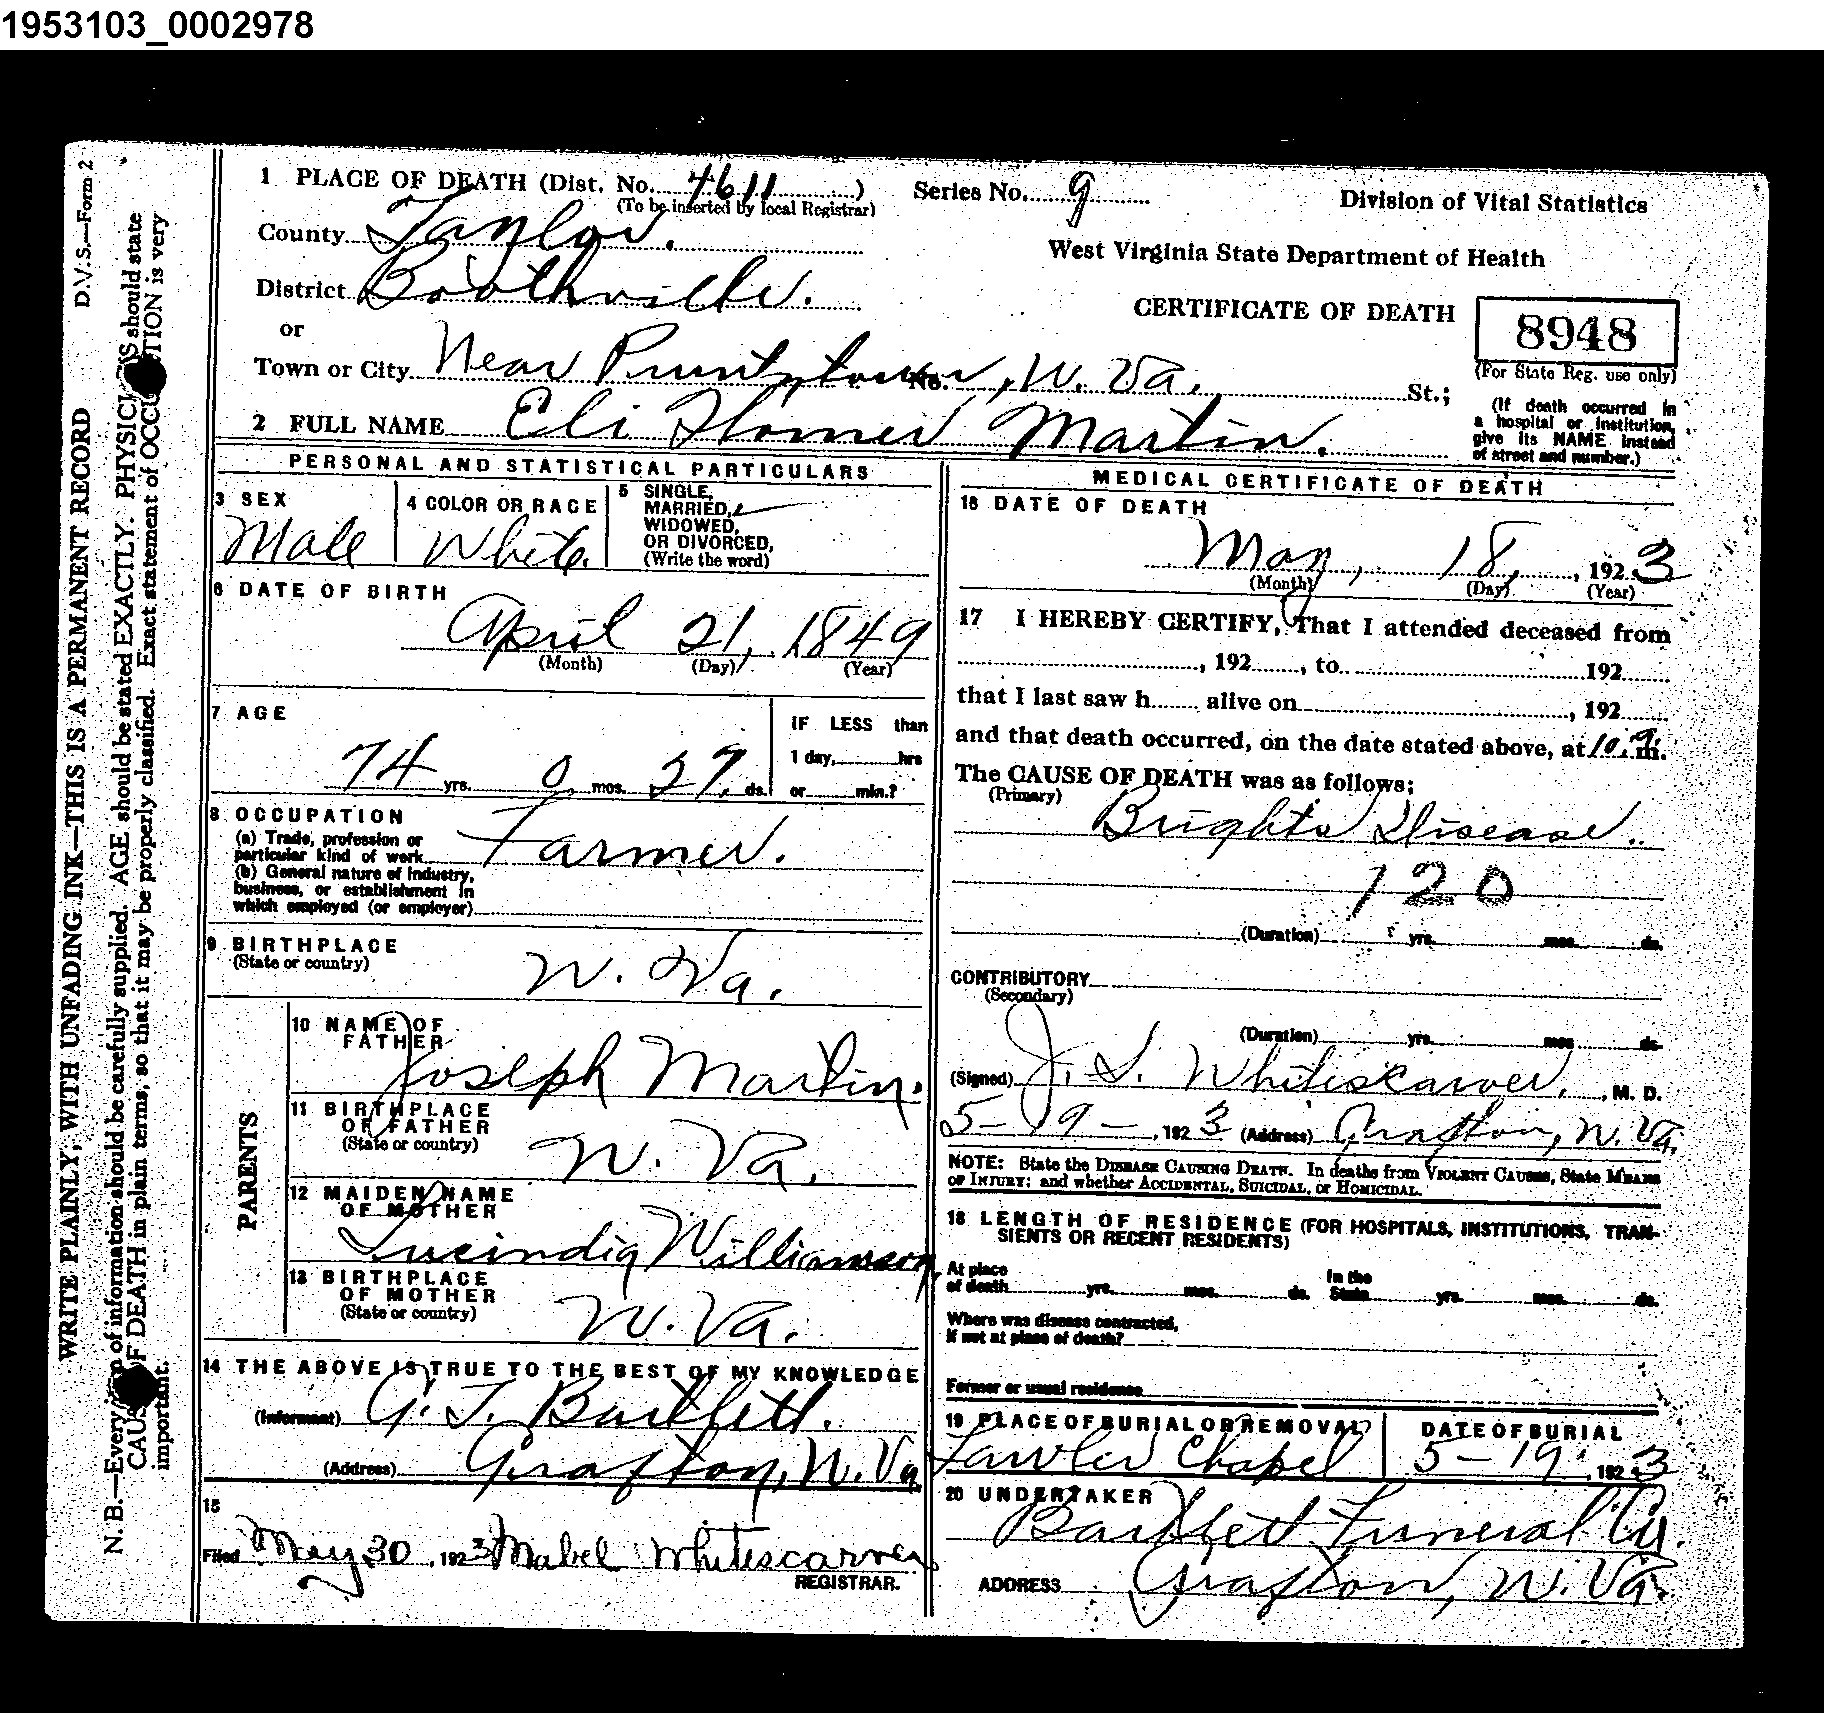 1953103_0002978
D.V.S.—Form 2
WRITE PLAINLY, WITH UNFADING INK—THIS IS A PERMANENT RECORD
N. B.—Every of information should be carefully supplied. AGE should be stated EXACTLY. PHYSIC should state
CAUS OF DEATH in plain terms, so that it may be properly classified. Exact statement of OCCU TION is very
important.
1 PLACE OF DEATH (Dist. No. 4611 ) Series No. 9 Division of Vital Statistics
(To be inserted by local Registrar)
County Taylor.
West Virginia State Department of Health
District Boothville.
or
CERTIFICATE OF DEATH 8948
(For State Reg. use only)
Town or City Near Pruntytown, W. Va. No. St.;
(If death occurred in
a hospital or institution,
give its NAME instead
of street and number.)
2 FULL NAME Eli Homer Martin.
PERSONAL AND STATISTICAL PARTICULARS
3 SEX
Male
4 COLOR OR RACE
White.
5 SINGLE,
MARRIED,
WIDOWED,
OR DIVORCED,
(Write the word)
6 DATE OF BIRTH
April 21, 1849
(Month) (Day) (Year)
7 AGE
74 yrs. 0 mos. 27 ds.
IF LESS than
1 day, hrs
or min.?
8 OCCUPATION
(a) Trade, profession or
particular kind of work Farmer.
(b) General nature of industry,
business, or establishment in
which employed (or employer)
9 BIRTHPLACE
(State or country) W. Va.
PARENTS
10 NAME OF
FATHER
Joseph Martin.
11 BIRTHPLACE
OF FATHER
(State or country) W. Va.
12 MAIDEN NAME
OF MOTHER
Lucindia Williamson,
13 BIRTHPLACE
OF MOTHER
(State or country) W. Va.
14 THE ABOVE IS TRUE TO THE BEST OF MY KNOWLEDGE
(Informant) G. T. Bartlett.
(Address) Grafton, W. Va
15
Filed May 30, 1923 Mabel Whitescarver
REGISTRAR.
MEDICAL CERTIFICATE OF DEATH
16 DATE OF DEATH
May, 18, 1923
(Month) (Day) (Year)
17 I HEREBY CERTIFY, That I attended deceased from
, 192 , to 192
that I last saw h alive on , 192
and that death occurred, on the date stated above, at 10 m.
The CAUSE OF DEATH was as follows:
(Primary)
Brights Disease.
120
(Duration) yrs. mos. ds.
CONTRIBUTORY
(Secondary)
(Duration) yrs. mos. ds.
(Signed) J. S. Whitescarver, M. D.
5-19-, 1923 (Address) Grafton, W. Va.
NOTE: State the DISEASE CAUSING DEATH. In deaths from VIOLENT CAUSES, State MEANS
OF INJURY; and whether ACCIDENTAL, SUICIDAL, or HOMICIDAL.
18 LENGTH OF RESIDENCE (FOR HOSPITALS, INSTITUTIONS, TRAN-
SIENTS OR RECENT RESIDENTS)
At place
of death yrs. mos. ds.
In the
State yrs. mos. ds.
Where was disease contracted,
if not at place of death?
Former or usual residence
19 PLACE OF BURIAL OR REMOVAL
Lawler Chapel
DATE OF BURIAL
5-19, 1923
20 UNDERTAKER
Bartlett Funeral Co.
ADDRESS Grafton, W. Va.